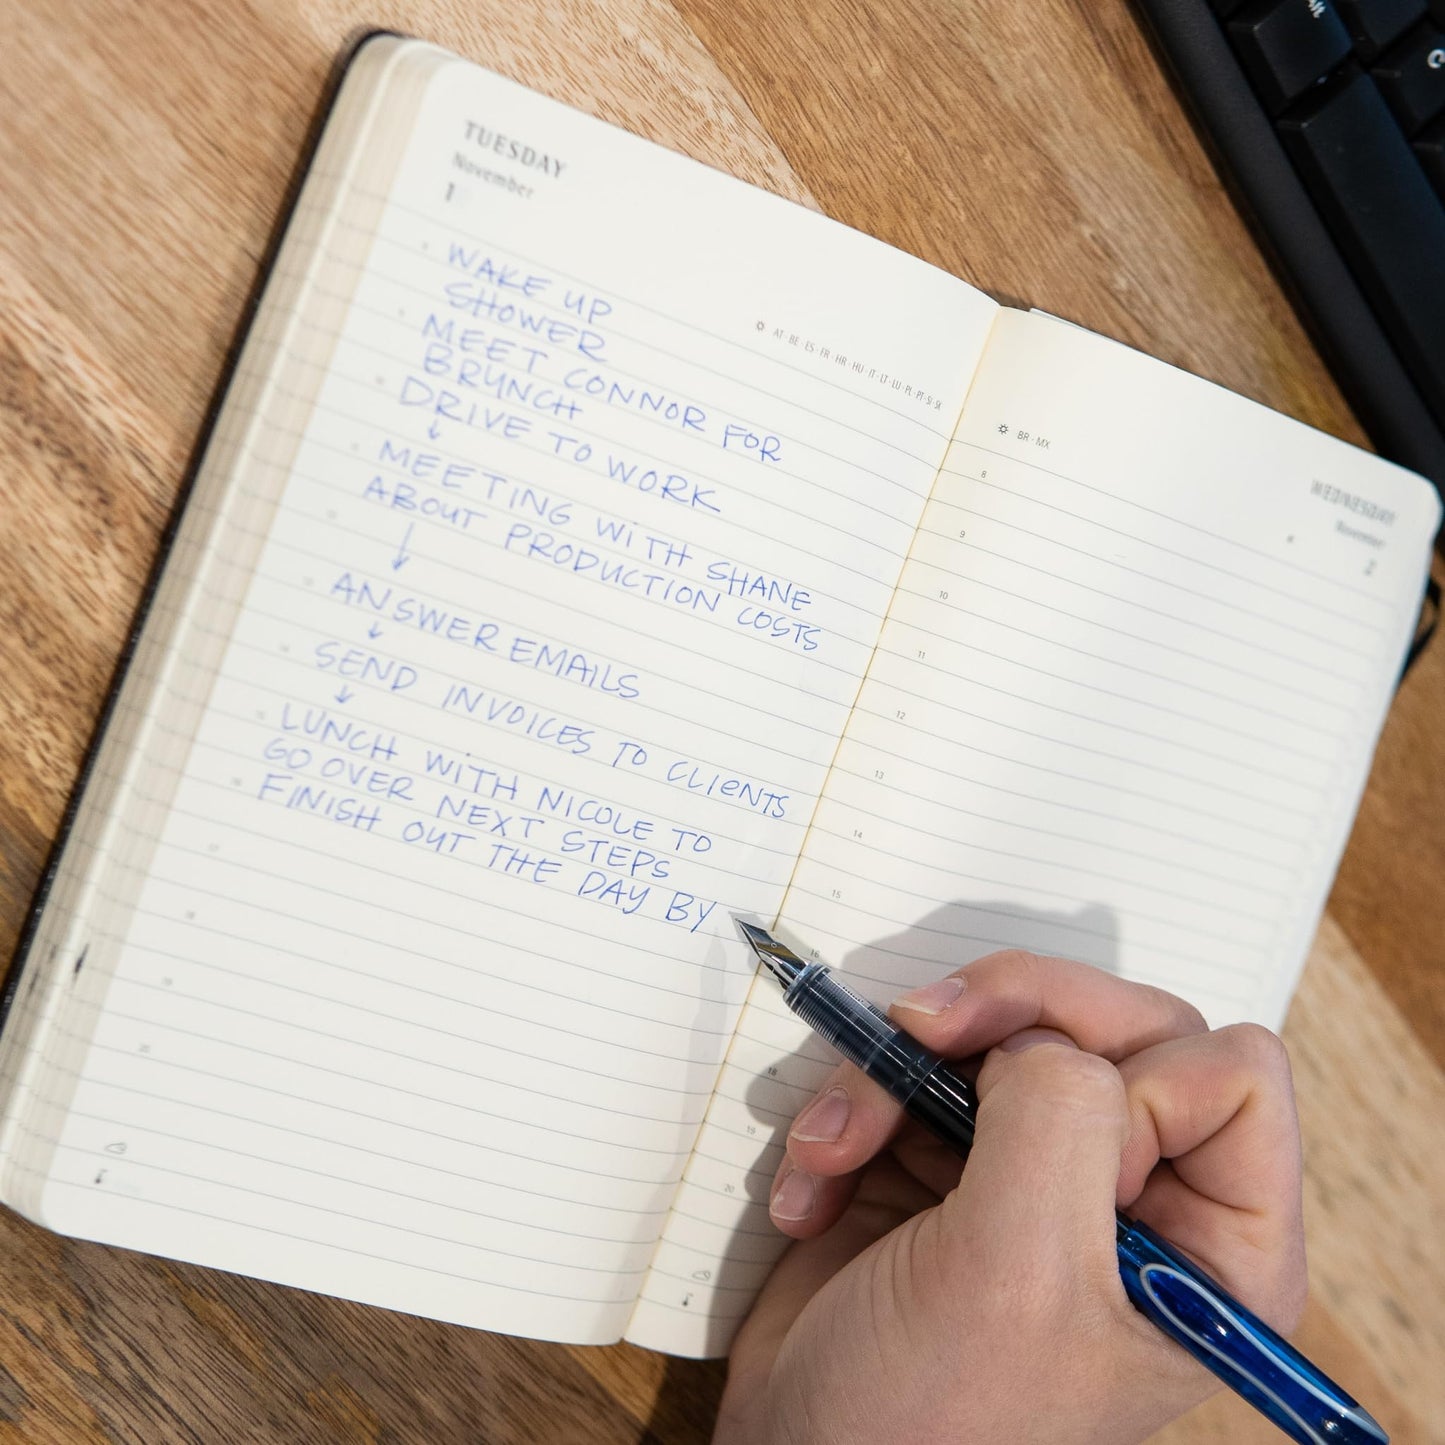 TUESDAY
November
1
AT·BE·ES·FR·HR·HU·IT·LT·LU·PL·PT·SI·SK
WAKE UP
SHOWER
MEET CONNOR FOR
BRUNCH
DRIVE TO WORK
↓
MEETING WITH SHANE
ABOUT PRODUCTION COSTS
↓
ANSWER EMAILS
↓
SEND INVOICES TO CLIENTS
↓
LUNCH WITH NICOLE TO
GO OVER NEXT STEPS
FINISH OUT THE DAY BY
17
18
19
20
BR·MX
WEDNESDAY
November
2
8
9
10
11
12
13
14
15
16
18
19
20